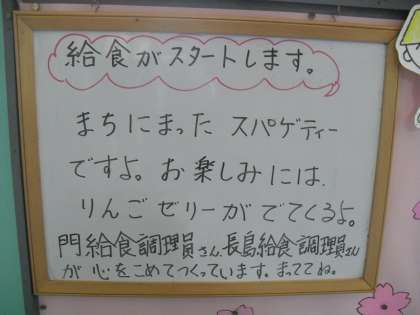 給食がスタートします。
まちにまった スパゲティー
ですよ。お楽しみには、
りんごゼリーがでてくるよ。
門給食調理員さん、長島給食調理員さん
が心をこめてつくっています。まっててね。